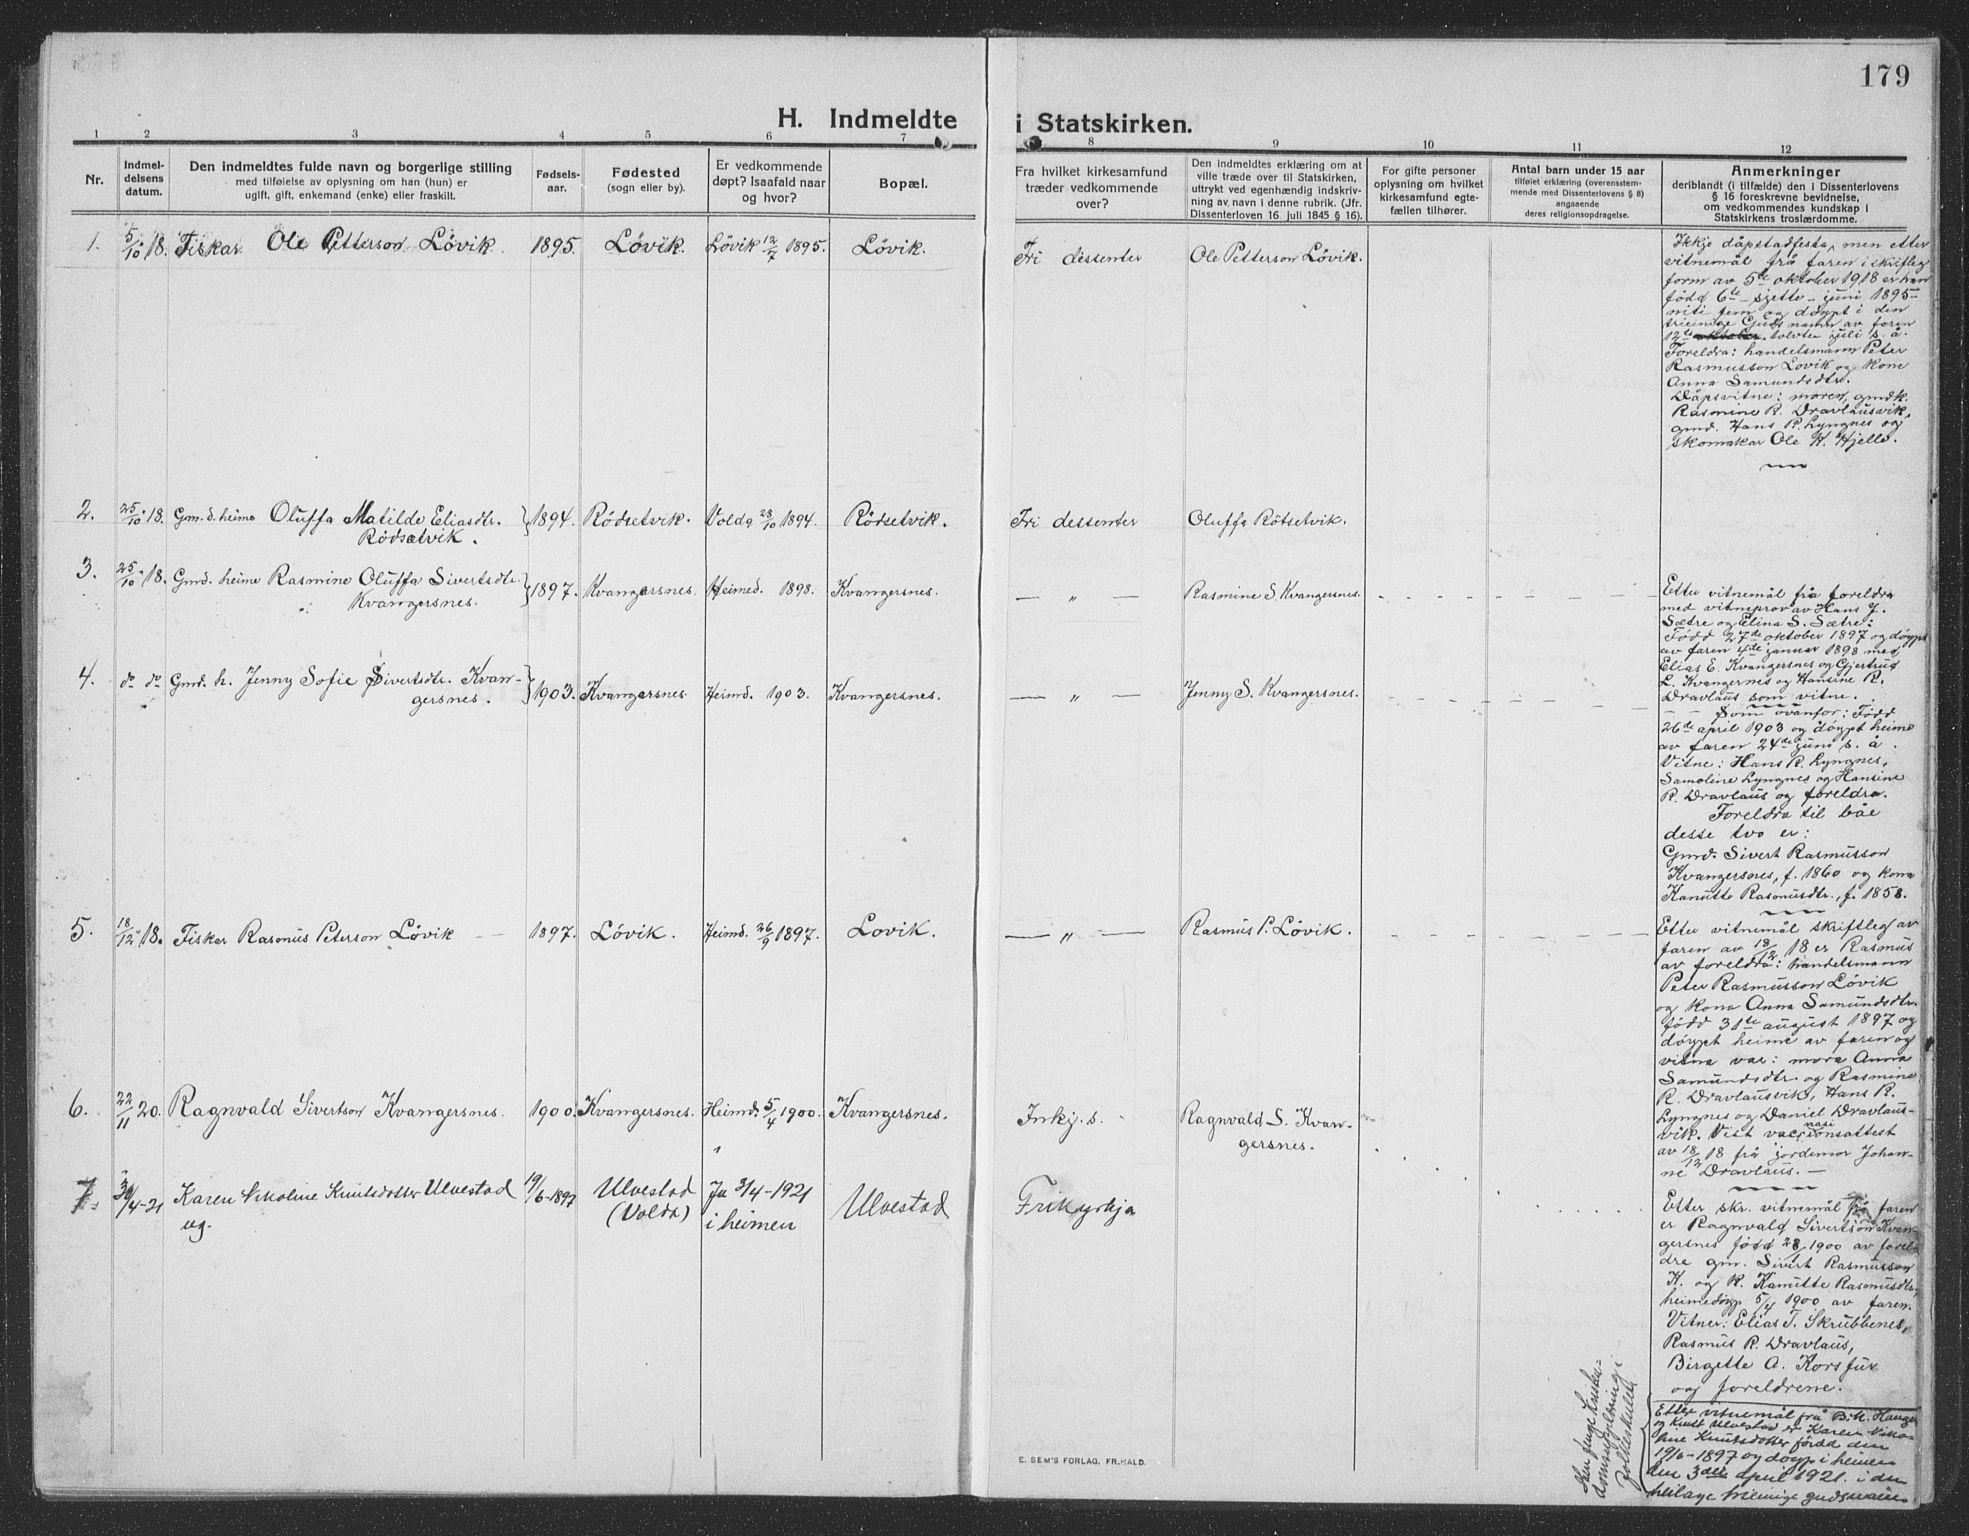 179
H. Indmeldte i Statskirken.
1 2 3 4 5 6 7 8 9 10 11 12
Nr.
Indmel-
delsens
datum.
Den indmeldtes fulde navn og borgerlige stilling
med tilføielse av oplysning om han (hun) er
ugift, gift, enkemand (enke) eller fraskilt.
Fødsels-
aar.
Fødested
(sogn eller by).
Er vedkommende
døpt? Isaafald naar
og hvor?
Bopæl.
Fra hvilket kirkesamfund
træder vedkommende
over?
Den indmeldtes erklæring om at
ville træde over til Statskirken,
uttrykt ved egenhændig indskriv-
ning av navn i denne rubrik. (Jfr.
Dissenterloven 16. juli 1845 § 16).
For gifte personer
oplysning om hvilket
kirkesamfund egte-
fællen tilhører.
Antal barn under 15 aar
tilføiet erklæring (overensstem-
mende med Dissenterlovens § 8)
angaaende
deres religionsopdragelse.
Anmerkninger
deriblandt (i tilfælde) den i Dissenterlovens
§ 16 foreskrevne bevidnelse,
om vedkommendes kundskap i
Statskirkens troslærdomme.
1. 5/10 18. Fiskar Ole Petterson Lövik. 1895. Lövik. Lövik 12/7 1895. Lövik. Fri dessenter Ole Petterson Lövik.
Ikkje dåpstadfesta, men etter
vitnemål frå faren i skriftleg
form av 5te oktober 1918 er han
född 6te – sjette – juni 1895
niti fem og döypt i den
trieinige Guds namn av faren
12te oktober, tolvte juli s. å.
Foreldra: handelsmann Peter
Rasmusson Lövik og kone
Anna Samundsdtr.
Dåpsvitne: moren, gmdk.
Rasmine R. Dravlausvik,
gmd. Hans R. Lyngnes og
skomakar Ole K. Hjelle.
2. 25/10 18. Gm.d. heime Oluffa Matilde Eliasdtr.
Rödsetvik. 1894. Rödsetvik. Volda 28/10 1894. Rödsetvik. Fri dessenter Oluffa Rötsetvik.
3. 25/10 18. Gmd. heime Rasmine Oluffa Sivertsdtr.
Kvangersnes. 1897. Kvangersnes. Heimed. 1898. Kvangersnes. — „ — Rasmine S. Kvangersnes.
Etter vitnemål frå foreldra
med vitneprov av Hans J.
Sætre og Elina S. Sætre:
Född 27de oktober 1897 og döypt
av faren 4de januar 1898 med
Elias E. Kvangersnes og Gjertrud
L. Kvangernes og Hansine R.
Dravlaus som vitne.
4. do do Gmd. h. Jenny Sofie Sivertsdtr. Kvan-
gersnes. 1903. Kvangersnes. Heimd. 1903. Kvangersnes. — „ — Jenny S. Kvangersnes.
– Som ovanfor: Född
26de april 1903 og döypt heime
av faren 24de juni s. å.
Vitne: Hans R. Lyngnes,
Samoline Lyngnes og Hansine
R. Dravlaus og foreldra.
Foreldra til båe
desse tvo er:
Gmd. Sivert Rasmusson
Kvangersnes, f. 1860 og kona
Kanutte Rasmusdtr., f. 1858.
5. 18/12 18. Fiskar Rasmus Peterson Lövik 1897. Lövik. Heimd. 26/9 1897. Lovik. — „ — Rasmus P. Lövik.
Etter vitnemål skriftleg av
faren av 18/12 18 er Rasmus
av foreldra: handelsmann
Peter Rasmusson Lövik
og kona Anna Samundsdtr.
född 31te august 1897 og
döypt heime av faren og
vitna var: mora Anna
Samundsdtr. og Rasmine
R. Dravlausvik, Hans R.
Lyngnes og Daniel Dravlaus-
vik. Vist vacsinasjonsattest
av 18/12 18 frå jordemor Johan-
ne Dravlaus. –
6. 22/11 20. Ragnvald Sivertson Kvangersnes. 1900. Kvangersnes. Heimd. 5/4 1900. Kvangersnes. Inkj. s. Ragnvald S. Kvan-
gersnes.
Etter skr. vitnemål frå faren
er Ragnvald Sivertson Kvan-
gersnes född 28 1900 av forel-
dre gm. Sivert Rasmusson
K. og K. Kanutte Rasmusdtr.,
heimedöyp 5/4 1900 av faren.
Vitner: Elias T. Skrubbenes,
Rasmus R. Dravlaus,
Birgette A. Korsfur
og foreldrene.
7. 30/4-21 Karen Nikoline Knutsdotter Ulvestad
ug. 19/6-1897 Ulvestad
(Volda) Ja 3/4-1921
i heimen Ulvestad Frikyrkja
Etter vitnemål frå B. M. Hauge
og Knut Ulvestad er Karen Niko-
line Knutsdotter född den
19/6-1897 og döypt i heimen
den 3die april 1921 i den
heilage trieinige gudsnamn
folkeskulen
E. SEM'S FORLAG, FR.HALD.